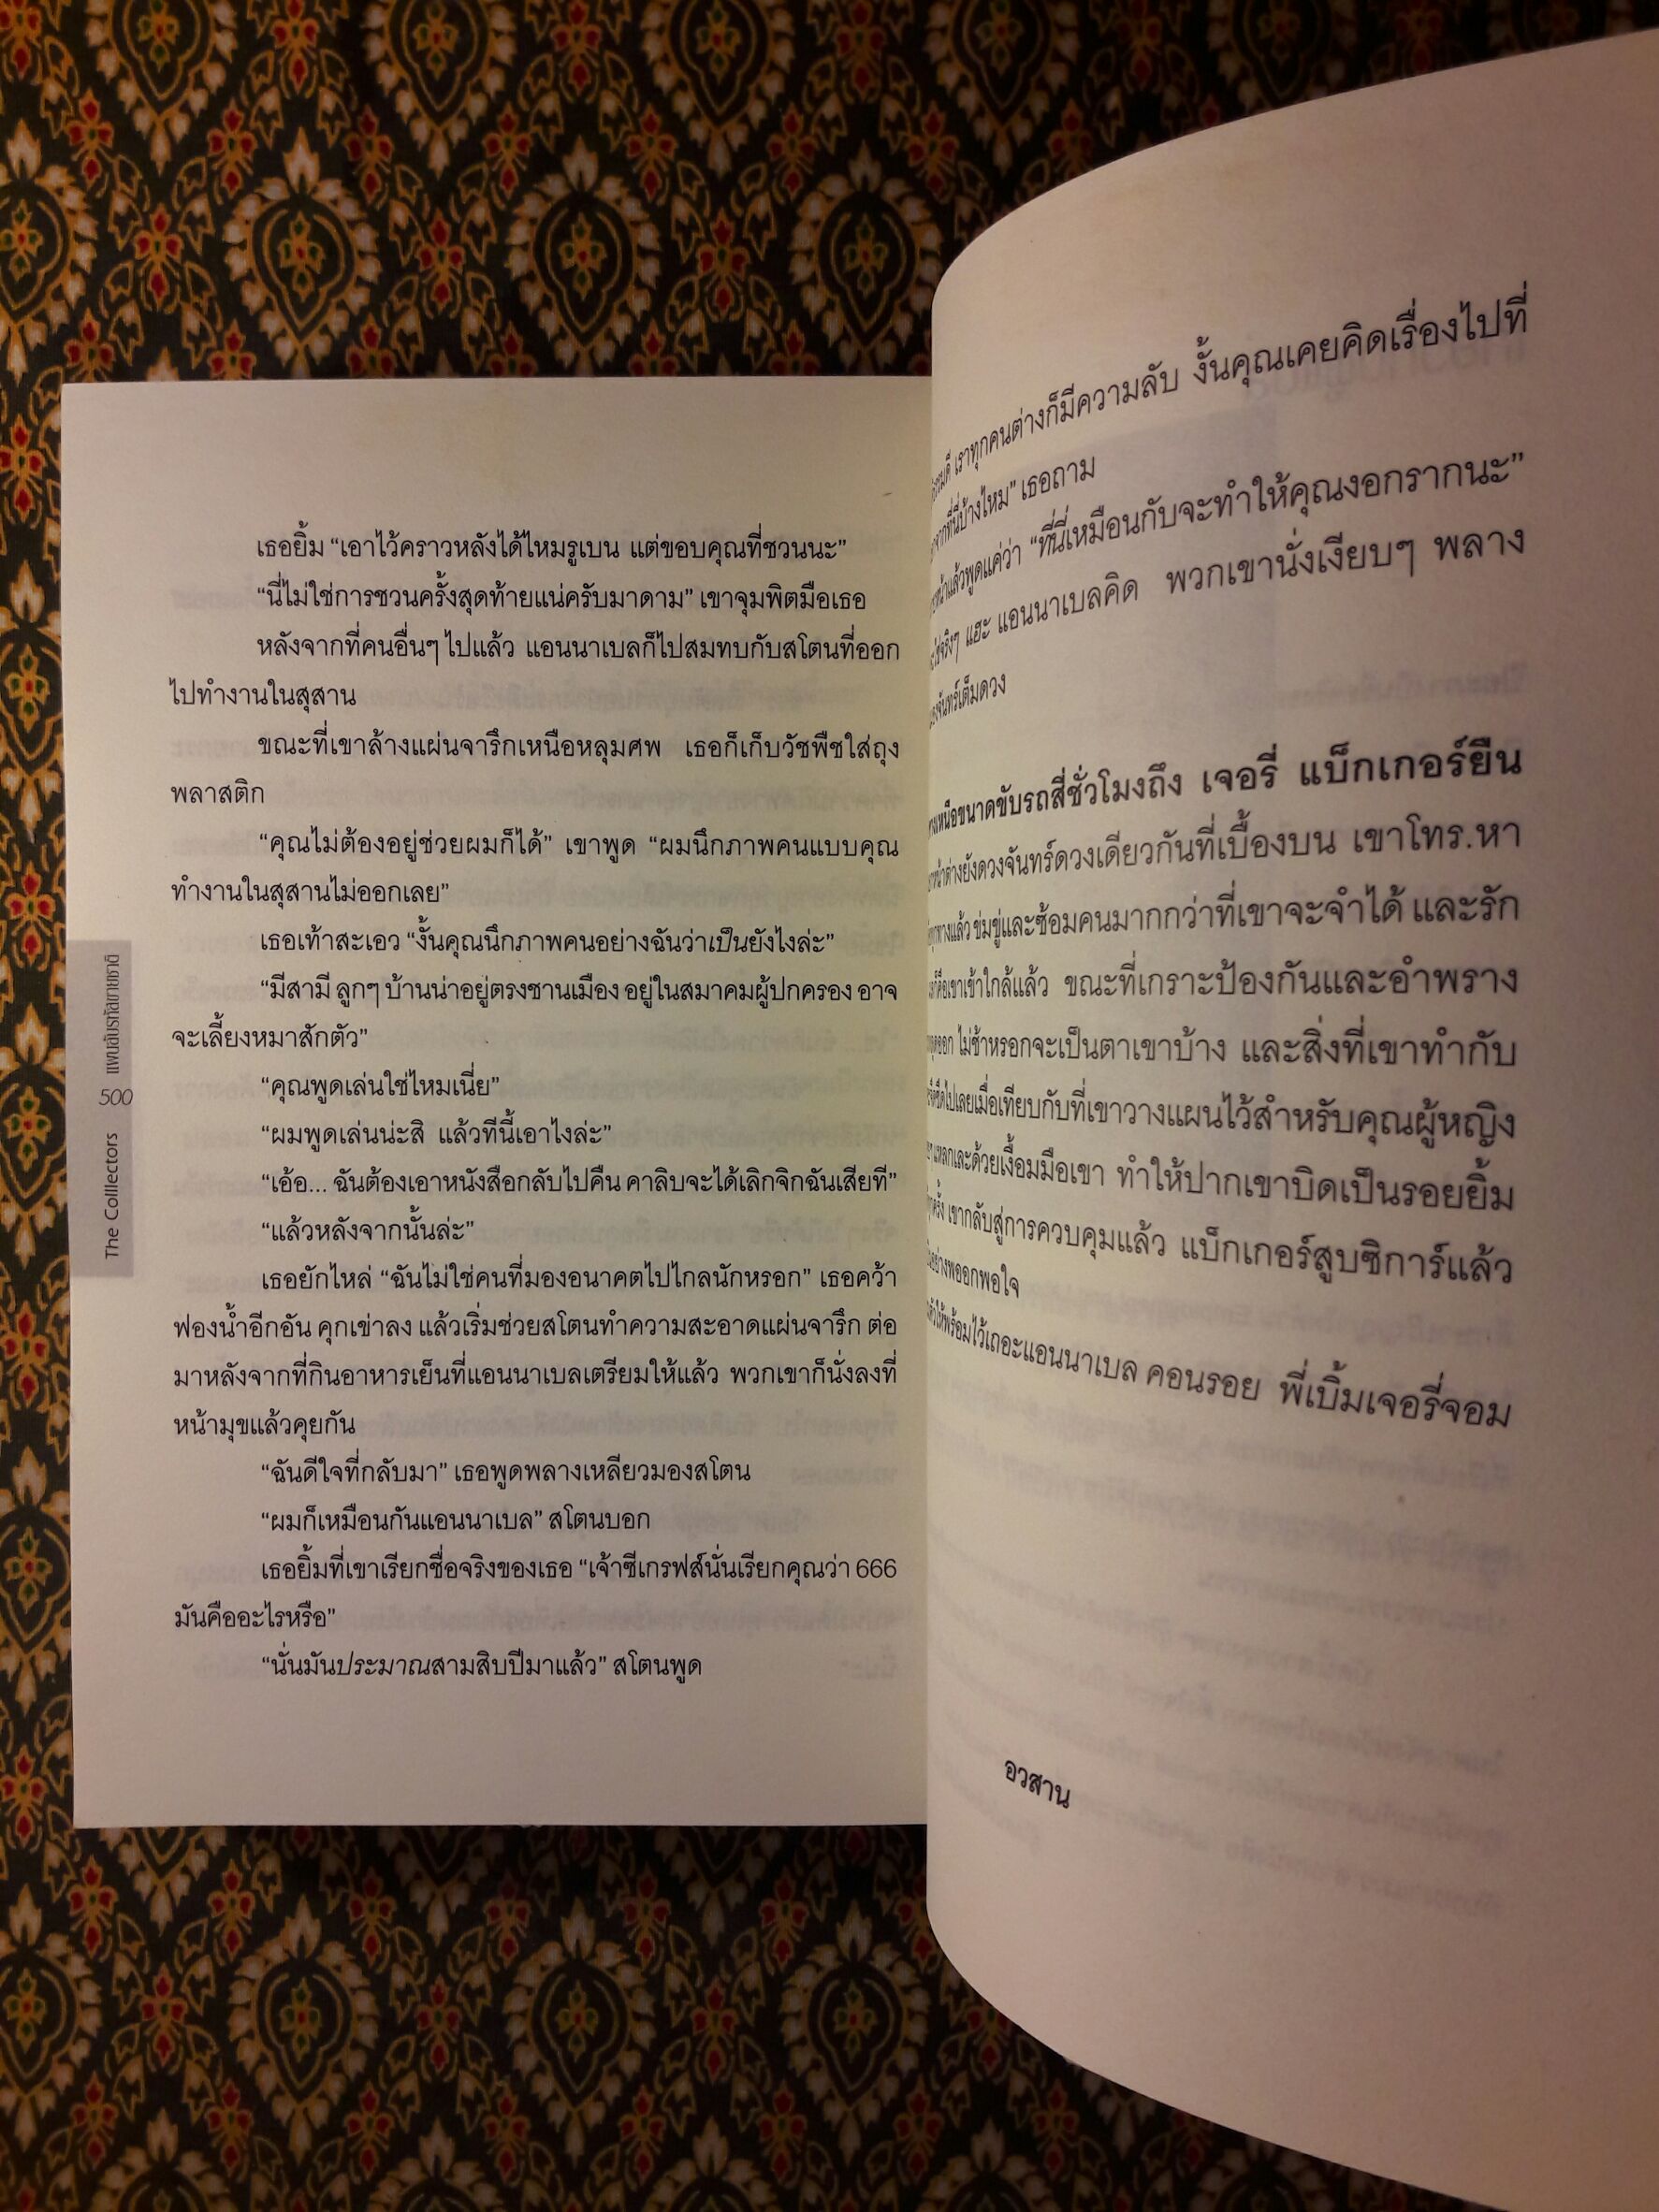 เธอยิ้ม “เอาไว้คราวหลังได้ไหมรูเบน แต่ขอบคุณที่ชวนนะ”
“นี่ไม่ใช่การชวนครั้งสุดท้ายแน่ครับมาดาม” เขาจุมพิตมือเธอ
หลังจากที่คนอื่นๆ ไปแล้ว แอนนาเบลก็ไปสมทบกับสโตนที่ออก
ไปทำงานในสุสาน
ขณะที่เขาล้างแผ่นจารึกเหนือหลุมศพ เธอก็เก็บวัชพืชใส่ถุง
พลาสติก
“คุณไม่ต้องอยู่ช่วยผมก็ได้” เขาพูด “ผมนึกภาพคนแบบคุณ
ทำงานในสุสานไม่ออกเลย”
เธอเท้าสะเอว “งั้นคุณนึกภาพคนอย่างฉันว่าเป็นยังไงล่ะ”
“มีสามี ลูกๆ บ้านน่าอยู่ตรงชานเมือง อยู่ในสมาคมผู้ปกครอง อาจ
จะเลี้ยงหมาสักตัว”
“คุณพูดเล่นใช่ไหมเนี่ย”
“ผมพูดเล่นน่ะสิ แล้วทีนี้เอาไงล่ะ”
“เอ้อ... ฉันต้องเอาหนังสือกลับไปคืน คาลิบจะได้เลิกจิกฉันเสียที”
“แล้วหลังจากนั้นล่ะ”
เธอยักไหล่ “ฉันไม่ใช่คนที่มองอนาคตไปไกลนักหรอก” เธอคว้า
ฟองน้ำอีกอัน คุกเข่าลง แล้วเริ่มช่วยสโตนทำความสะอาดแผ่นจารึก ต่อ
มาหลังจากที่กินอาหารเย็นที่แอนนาเบลเตรียมให้แล้ว พวกเขาก็นั่งลงที่
หน้ามุขแล้วคุยกัน
“ฉันดีใจที่กลับมา” เธอพูดพลางเหลียวมองสโตน
“ผมก็เหมือนกันแอนนาเบล” สโตนบอก
เธอยิ้มที่เขาเรียกชื่อจริงของเธอ “เจ้าซีเกรฟส์นั่นเรียกคุณว่า 666
มันคืออะไรหรือ”
“นั่นมันประมาณสามสิบปีมาแล้ว” สโตนพูด
แผนลับรหัสขายชาติ
500
The Colllectors
เราทุกคนต่างก็มีความลับ งั้นคุณเคยคิดเรื่องไปที่
จากที่นี่บ้างไหม” เธอถาม
หน้าแล้วพูดแค่ว่า “ที่นี่เหมือนกับจะทำให้คุณงอกรากนะ”
แฮะ แอนนาเบลคิด พวกเขานั่งเงียบๆ พลาง
จันทร์เต็มดวง
เหนือขนาดขับรถสี่ชั่วโมงถึง เจอรี่ แบ็กเกอร์ยืน
หน้าต่างยังดวงจันทร์ดวงเดียวกันที่เบื้องบน เขาโทร.หา
ทุกทางแล้ว ข่มขู่และซ้อมคนมากกว่าที่เขาจะจำได้ และรัก
เขาเข้าใกล้แล้ว ขณะที่เกราะป้องกันและอำพราง
ไม่ช้าหรอกจะเป็นตาเขาบ้าง และสิ่งที่เขาทำกับ
ไปเลยเมื่อเทียบกับที่เขาวางแผนไว้สำหรับคุณผู้หญิง
แหลกเละด้วยเงื้อมมือเขา ทำให้ปากเขาบิดเป็นรอยยิ้ม
เขากลับสู่การควบคุมแล้ว แบ็กเกอร์สูบซิการ์แล้ว
อย่างพออกพอใจ
ให้พร้อมไว้เถอะแอนนาเบล คอนรอย พี่เบิ้มเจอรี่จอม
อวสาน